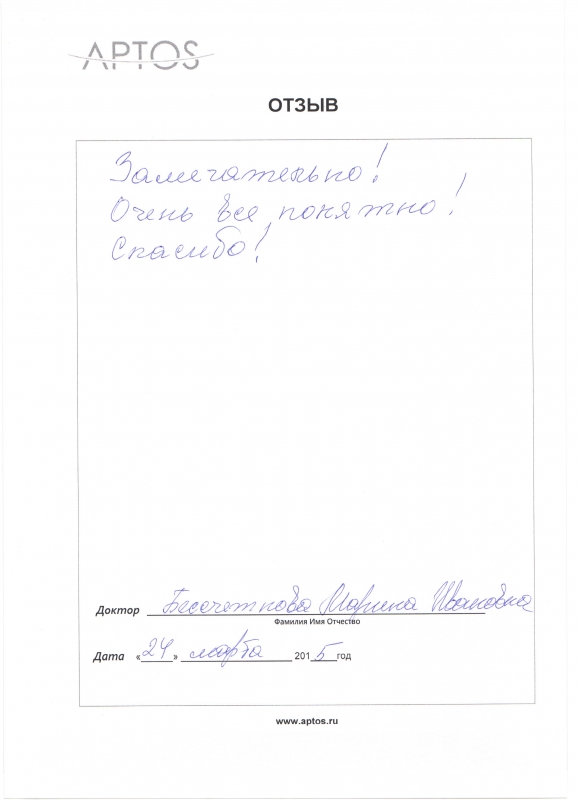 APTOS
ОТЗЫВ
Замечательно!
Очень все понятно!
Спасибо!
Доктор Бесчетнова Марина Ивановна
Фамилия Имя Отчество
Дата «24» марта 2015 год
www.aptos.ru